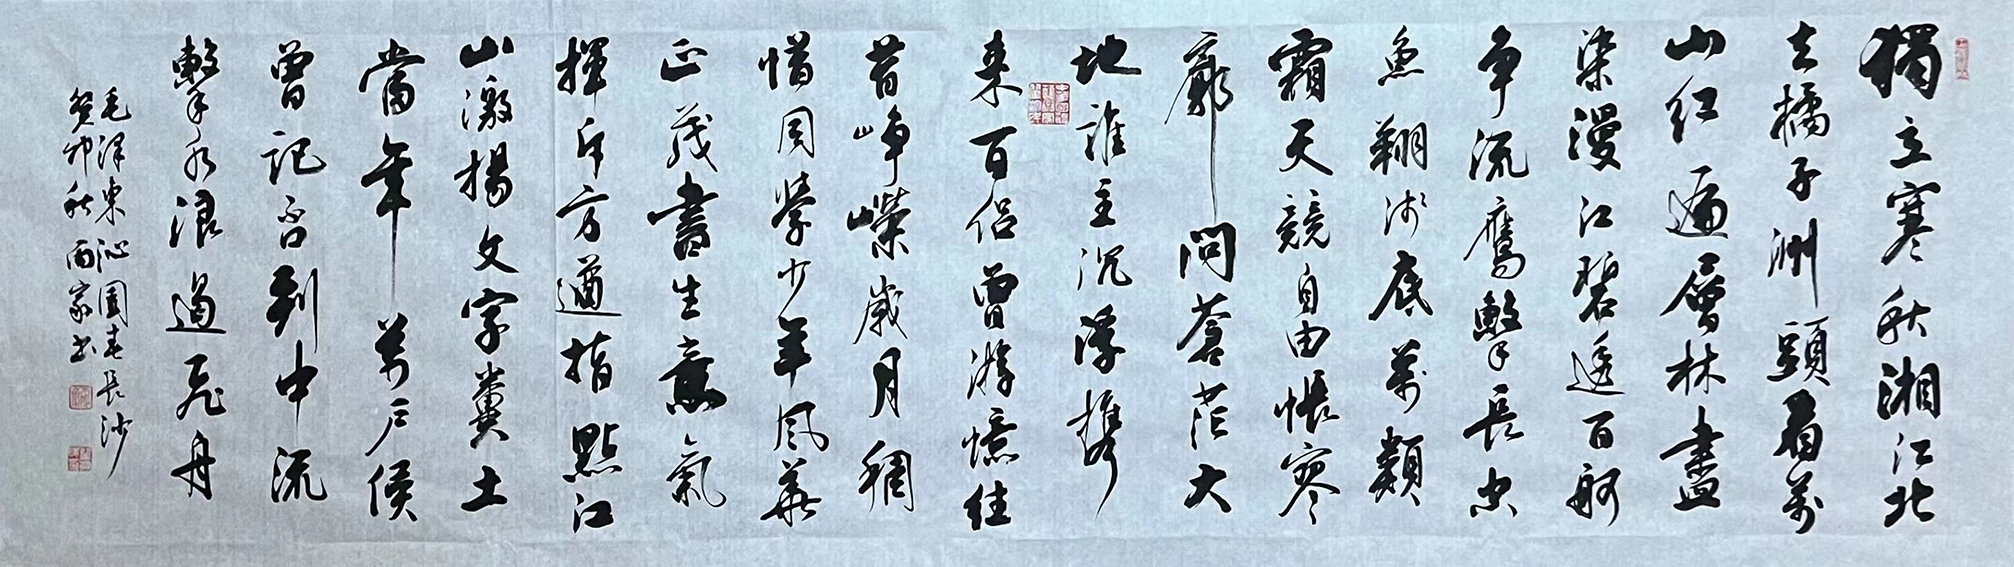 獨立寒秋湘江北
去橘子洲頭看萬
山红遍層林盡
染漫江碧透百舸
争流鷹擊長空
魚翔浅底萬類
霜天競自由悵寥
廓問蒼茫大
地誰主沉浮携
来百侣曾游憶往
昔峥嵘歲月稠
恰同學少年風華
正茂書生意氣
揮斥方遒指點江
山激揚文字糞土
當年萬户侯
曾記否到中流
擊水浪遏飛舟
毛澤東沁園春長沙
癸卯秋雨家书